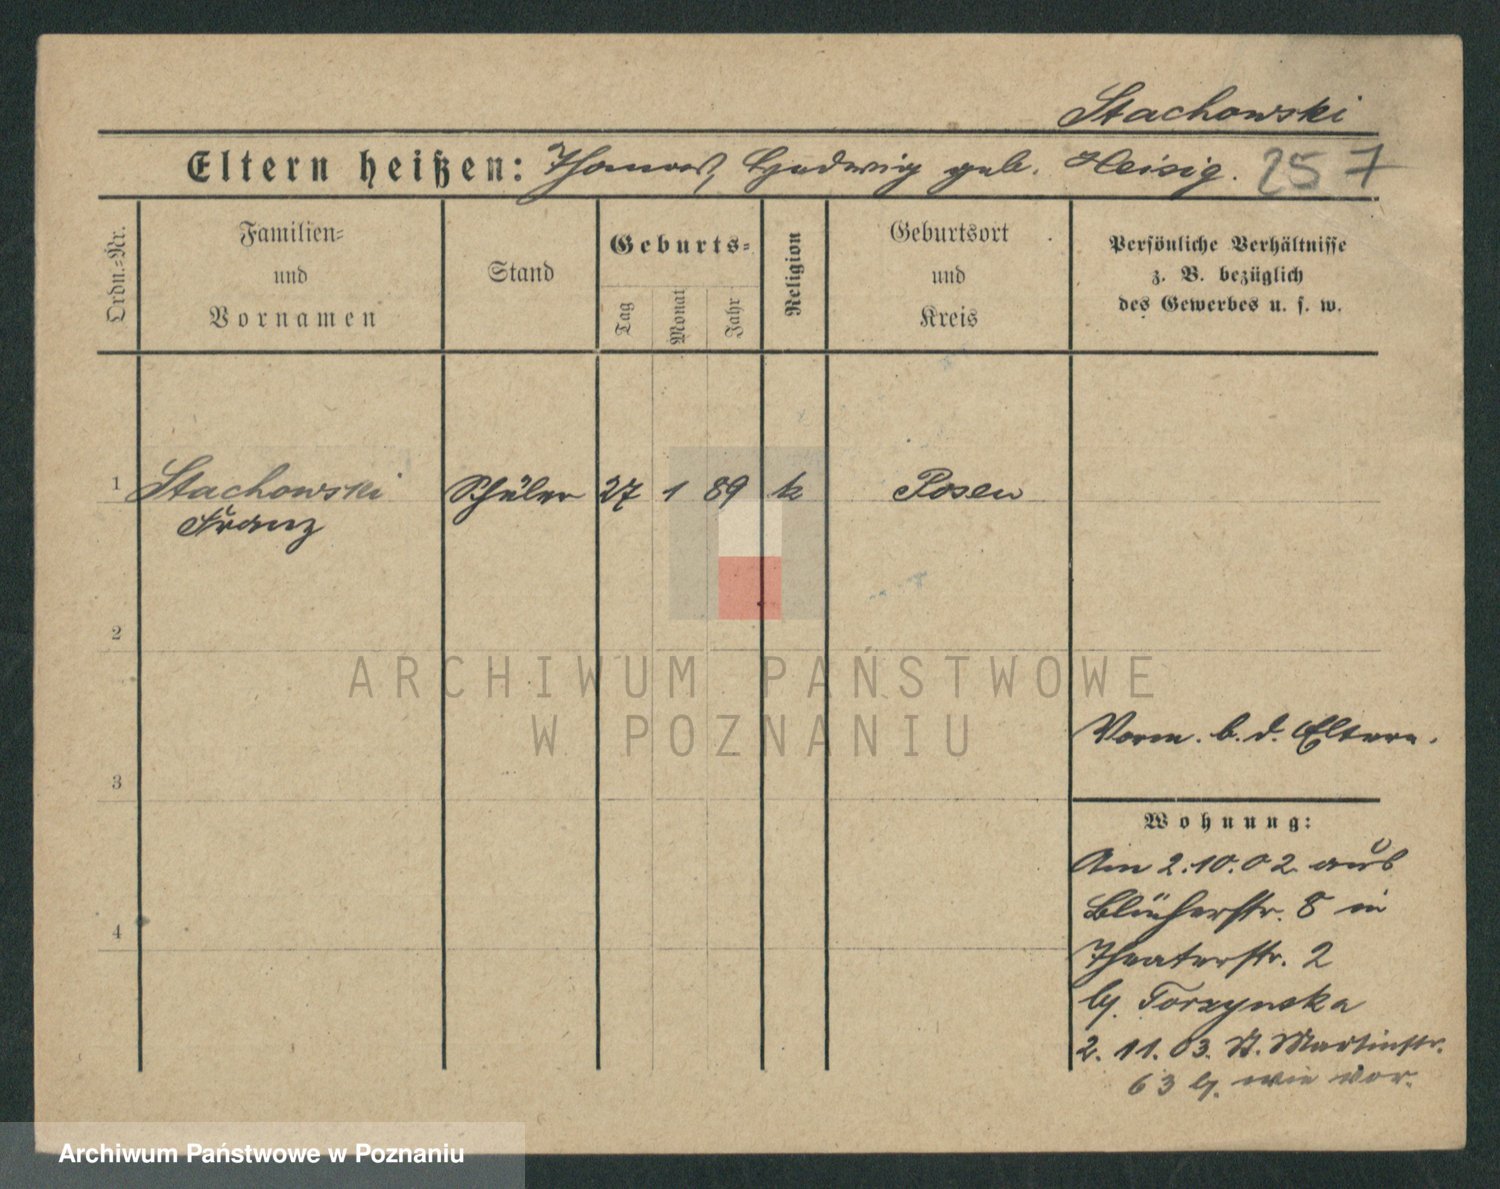 Stachowski
Eltern heißen: Thomas, Hedwig geb. Heisig. 257
Ordn.-Nr.
Familien-
und
Vornamen
Stand
Geburts-
Tag
Monat
Jahr
Religion
Geburtsort
und
Kreis
Persönliche Verhältnisse
z. B. bezüglich
des Gewerbes u. s. w.
1 Stachowski Schüler 27 1 89 k Posen
Franz
2
ARCHIWUM PAŃSTWOWE
W POZNANIU
Vorm. b. d. Eltern.
3
Wohnung:
Am 2.10.02 aus
Blücherstr. 8 in
4
Theaterstr. 2
bj. Torzynska
2. 11. 03. St. Martinstr.
63 bj. wie vor.
Archiwum Państwowe w Poznaniu